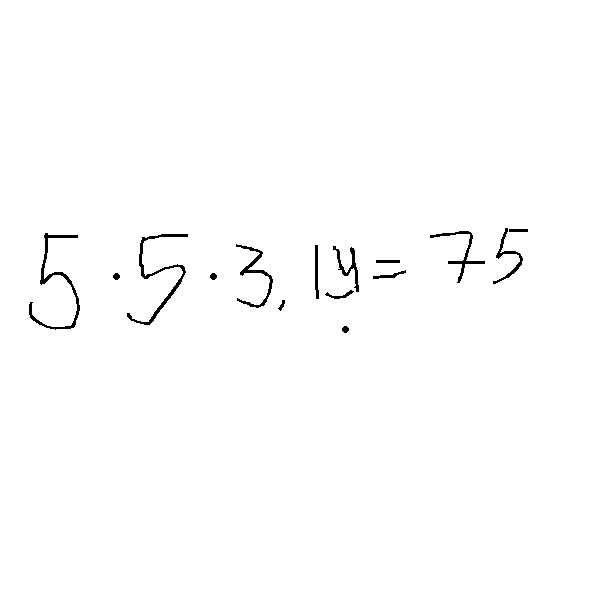 5 · 5 · 3,14 = 75